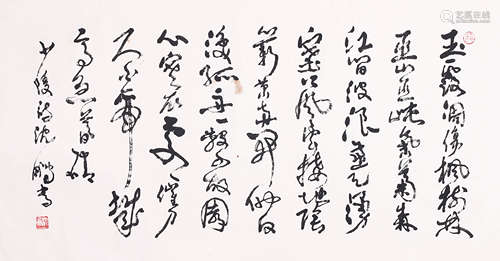 玉露凋伤枫树林
巫山巫峡气萧森
江间波浪兼天涌
塞上风云接地阴
丛菊两开他日
泪孤舟一系故园
心寒衣处处催刀
尺白帝城
高急暮砧
少陵诗沈鹏书